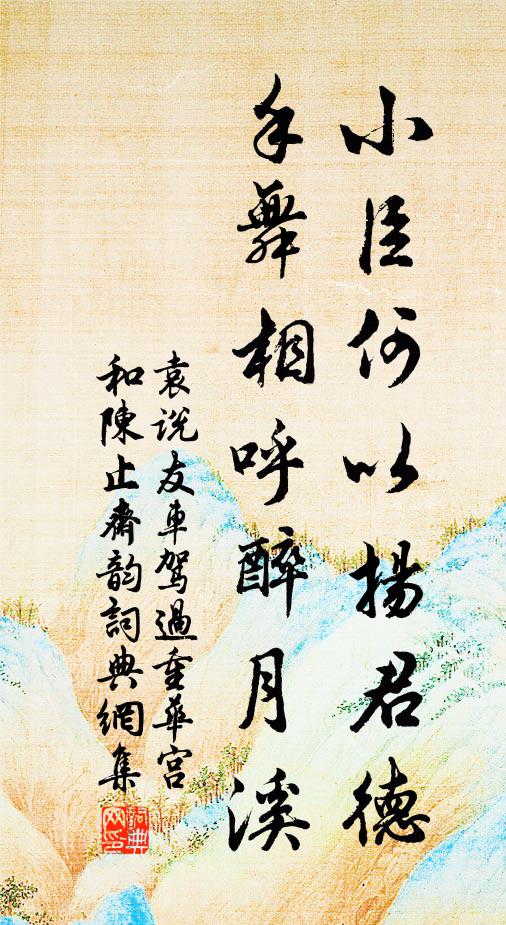 小臣何以揚君德
手舞相呼醉月溪
袁說友車駕過重華宮
和陳止齋韵詞典網集
詞典
网印